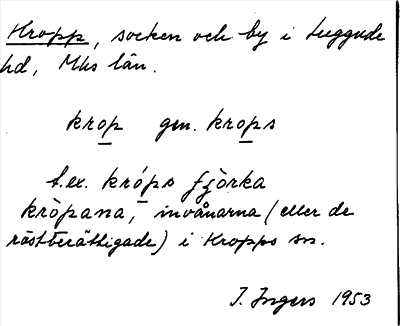 Kropp, socken och by i Luggude
hd, Mhs län.
krop gen. krops
t.ex. króps fjòrka
kròpana, invånarna (eller de
röstberättigade) i Kropps sn.
I. Ingers 1953